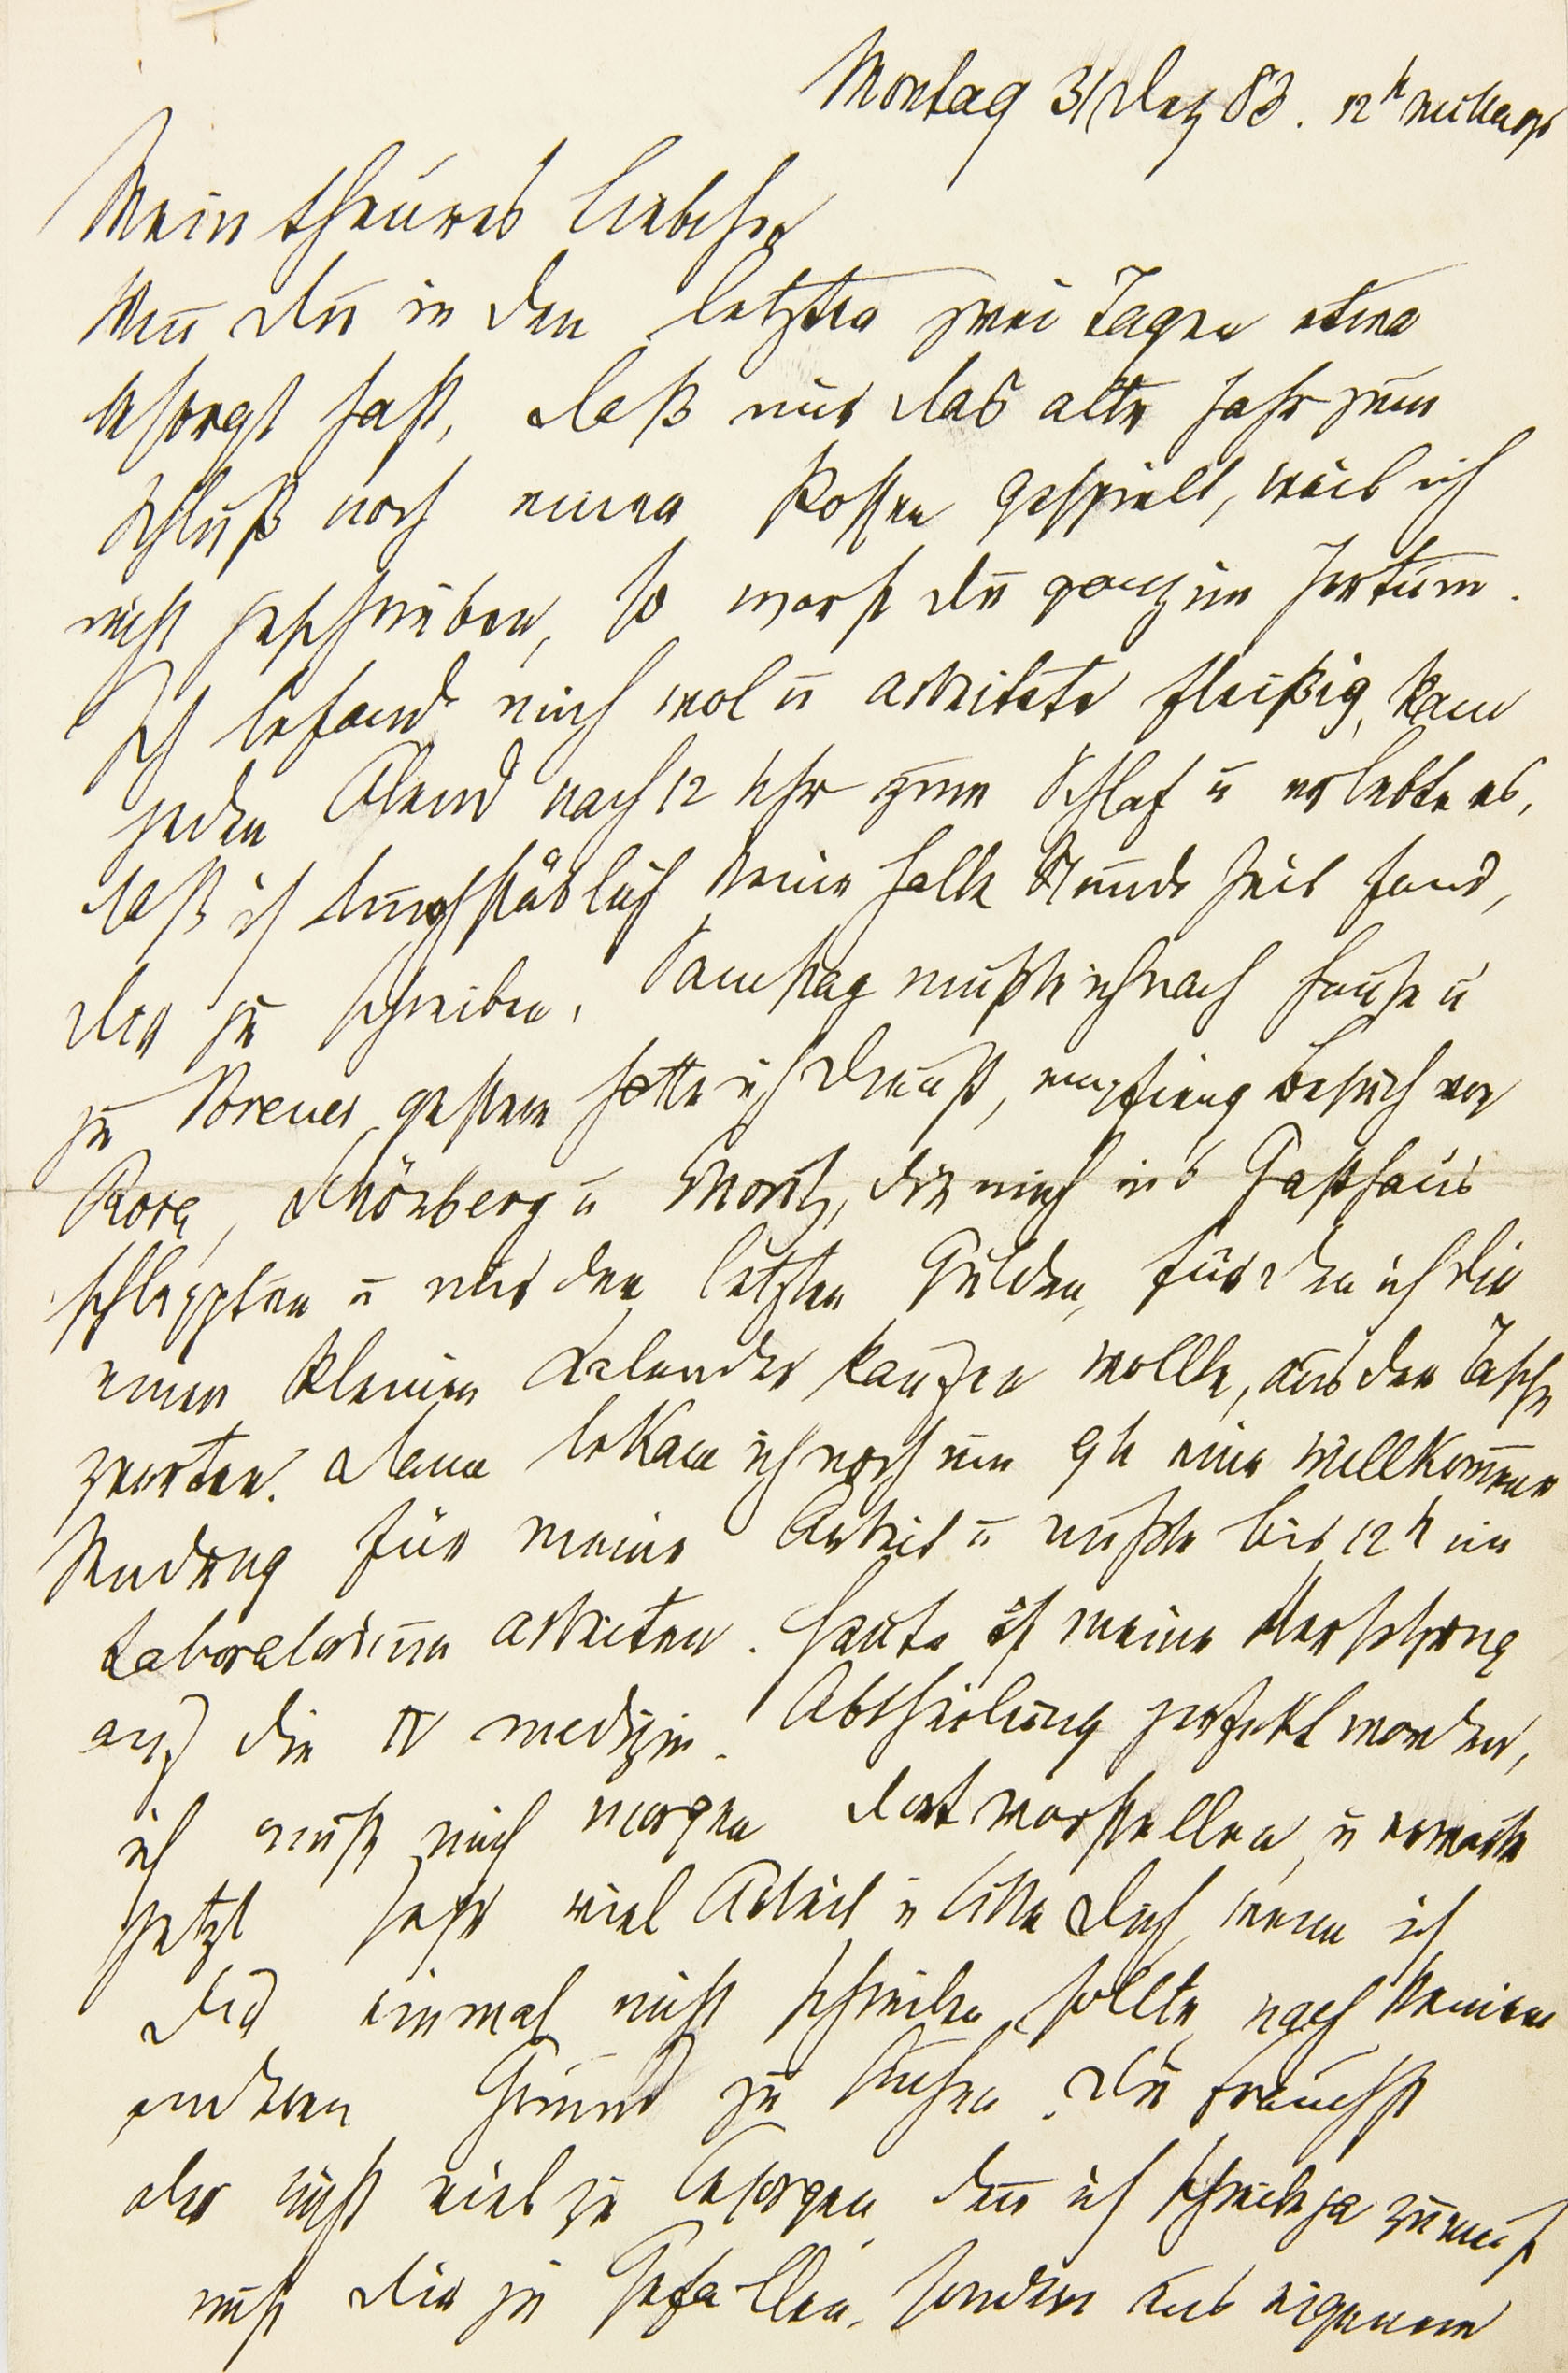 Montag 31/Dez 83. 12h mittags
Mein theures Liebchen
Wen̄ Du in den letzten zwei Tagen etwa
besorgt hast, daß mir das alte Jahr zum
Schluß noch einen Possen gespielt, weil ich
nicht geschrieben, so warst Du ganz im Irrtum.
Ich befand mich wol u arbeitete fleißig, kam
jeden Abend nach 12 Uhr zum Schlaf u erlebte es,
daß ich buchstäblich keine halbe Stunde Zeit fand,
Dir zu schreiben. Samstag mußte ich nach Hause u
zu Breuer, gestern hatte ich Dienst, empfieng Besuch von
Rosa, Schönberg u Moritz, die mich ins Gasthaus
schleppten u mir den letzten Gulden, für den ich Dir
einen kleinen Kalender kaufen wollte, aus der Tasche
zerrten. Dann bekam ich noch um 9h eine willkom̄ene
Sendung für meine Arbeit u mußte bis 12h im
Laboratorium arbeiten. Heute ist meine Versetzung
auf die IV medizin. Abtheilung perfekt worden,
ich muß mich morgen dort vorstellen, u erwarte
jetzt sehr viel Arbeit u bitte Dich, wenn ich
Dir einmal nicht schreiben sollte, nach keinem
anderen Grund zu suchen. Du brauchst
aber nicht viel zu besorgen, den̄ ich schreibe ja zumeist
nicht Dir zu Gefallen, sondern aus eigenem